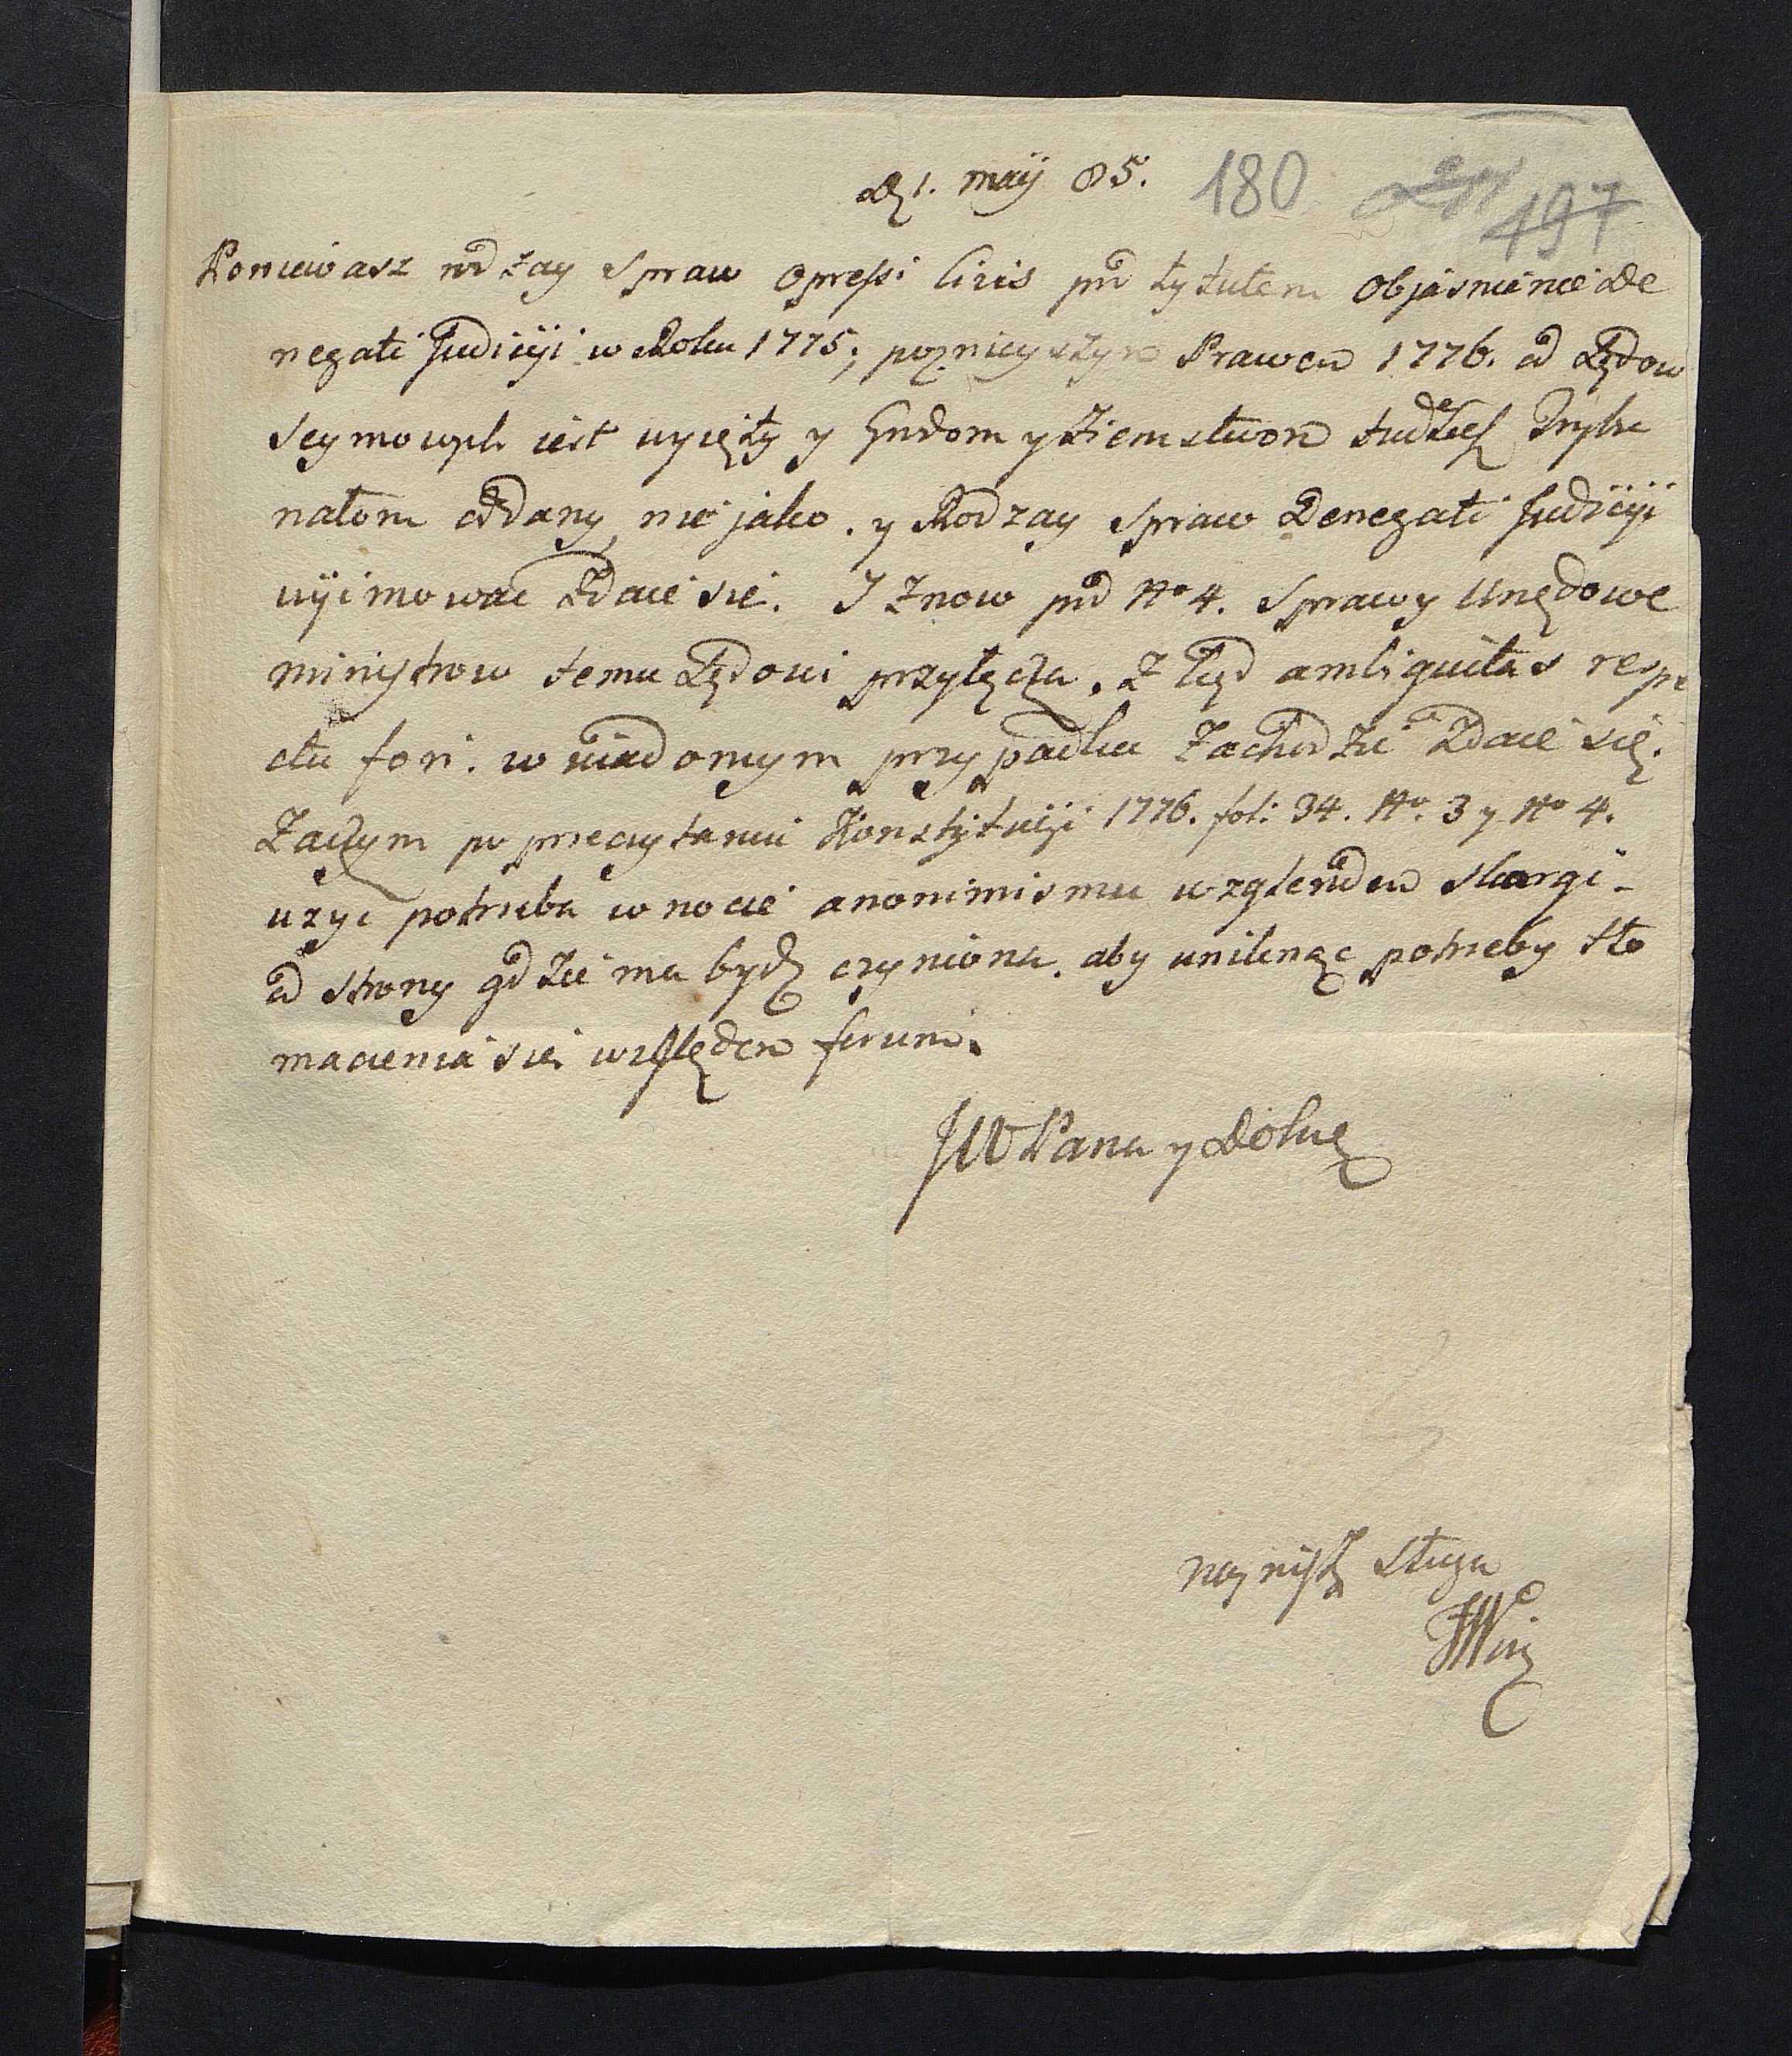 D. 1. maij 85. 180 497
Poniewasz rodzay spraw opressi Civis pod tytułem objasnienie De
negati Judicyi w Roku 1775; poznieyszym Prawem 1776. od Sądow
Seymowych iest wyięty y Grodom y Ziemstwom tudziesz Trybu
nałom oddany, nie jako. y Rodzay spraw Denegati Judicyi
wyimować zdaie sie. I znow pod No 4. sprawy Urzędowe
ministrow temu Sądowi przyłącza. z tąd ambiguitas respe
ctu fori. w wiadomym przypadku zachodzić zdaie się.
Zaczym po przeczytaniu Konstytucyi 1776. fol: 34. No. 3 y No 4.
uzyć potrzeba w nocie anonimismu względem skargi
od strony gdzie ma bydz czyniona. aby uniknąc potrzeby tło
maczenia sie względem forum.
JW Pana y Dobrę
nayniszy sługa